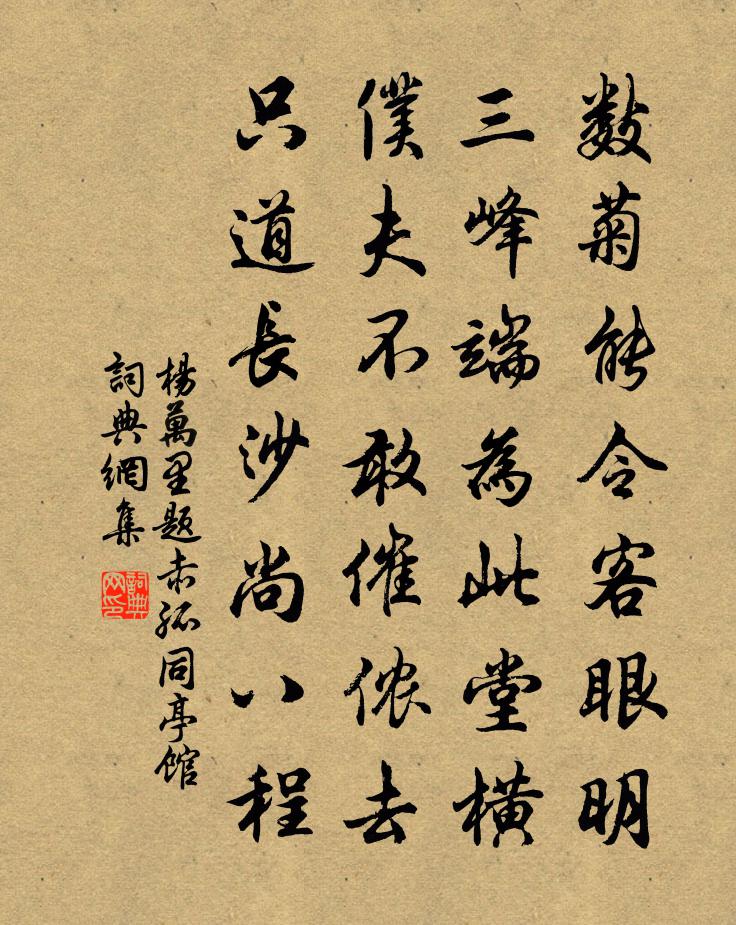 数菊能令客眼明
三峰端為此堂橫
僕夫不敢催侬去
只道長沙尚八程
楊萬里题赤孤同亭馆
詞典網集
詞典网印